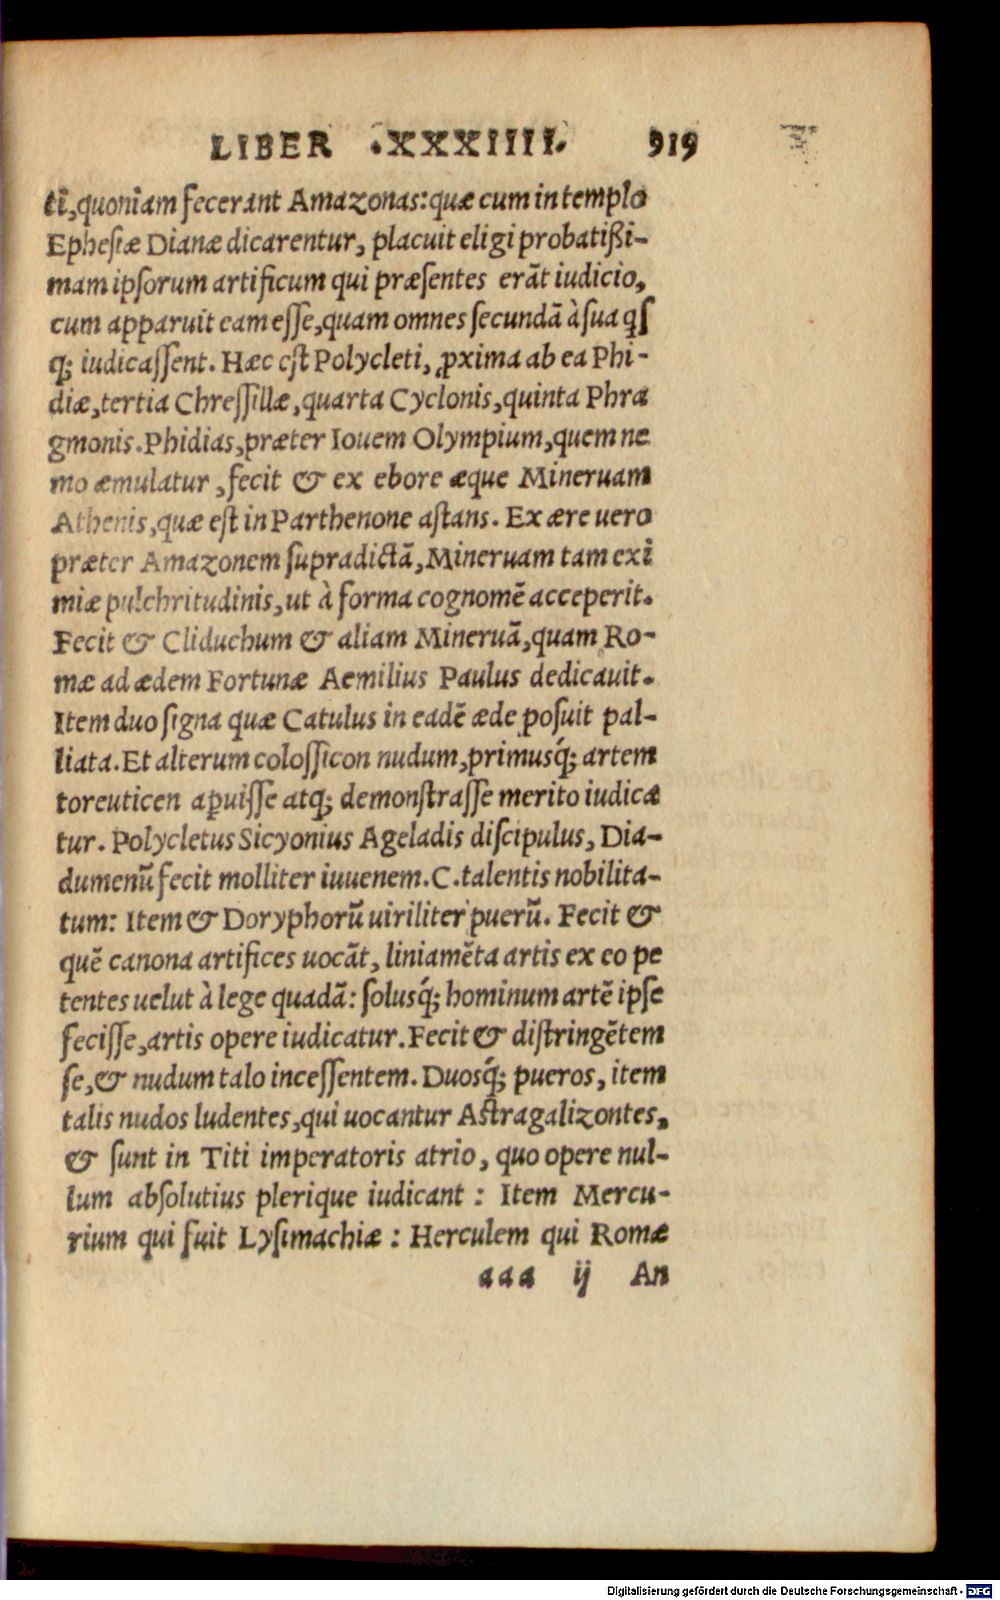 LIBER .XXXIIII. 919
ti, quoniam fecerant Amazonas: quæ cum in templo
Ephesiæ Dianæ dicarentur, placuit eligi probatißi-
mam ipsorum artificum qui præsentes erãt iudicio,
cum apparuit eam esse, quam omnes secundã à sua qs
q; iudicassent. Hæc est Polycleti, ꝓxima ab ea Phi-
diæ, tertia Chressillæ, quarta Cyclonis, quinta Phra
gmonis. Phidias, præter Iouem Olympium, quem ne
mo æmulatur, fecit & ex ebore æque Mineruam
Athenis, quæ est in Parthenone astans. Ex ære uero
præter Amazonem supradictã, Mineruam tam exi
miæ pulchritudinis, ut à forma cognomẽ acceperit.
Fecit & Cliduchum & aliam Mineruã, quam Ro-
mæ ad ædem Fortunæ Aemilius Paulus dedicauit.
Item duo signa quæ Catulus in eadẽ æde posuit pal-
liata. Et alterum colossicon nudum, primusq́; artem
toreuticen aꝑuisse atq; demonstrasse merito iudica
tur. Polycletus Sicyonius Ageladis discipulus, Dia-
dumenũ fecit molliter iuuenem. C. talentis nobilita-
tum: Item & Doryphorũ uiriliter puerũ. Fecit &
quẽ canona artifices uocãt, liniamẽta artis ex eo pe
tentes uelut à lege quadã: solusq́; hominum artẽ ipse
fecisse, artis opere iudicatur. Fecit & distringẽtem
se, & nudum talo incessentem. Duosq́; pueros, item
talis nudos ludentes, qui uocantur Astragalizontes,
& sunt in Titi imperatoris atrio, quo opere nul-
lum absolutius plerique iudicant: Item Mercu-
rium qui fuit Lysimachiæ: Herculem qui Romæ
aaa ij An
Digitalisierung gefördert durch die Deutsche Forschungsgemeinschaft - DFG